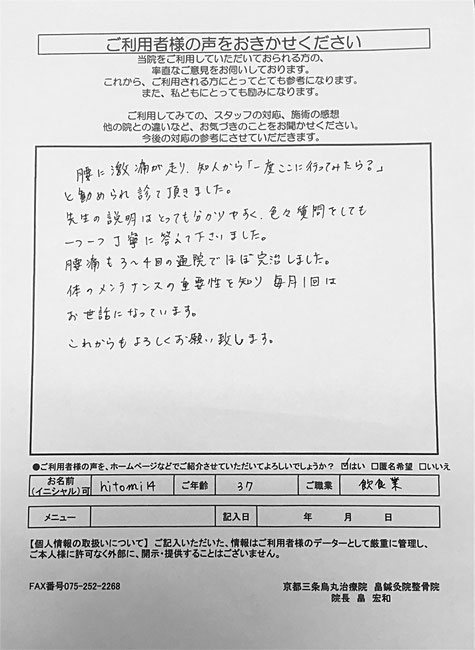 ご利用者様の声をおきかせください
当院をご利用していただいておられる方の、
率直なご意見をお伺いしております。
これから、ご利用される方にとってとても参考になります。
また、私どもにとっても励みになります。
ご利用してみての、スタッフの対応、施術の感想
他の院との違いなど、お気づきのことをお聞かせください。
今後の対応の参考にさせていただだきます。
腰に激痛が走り、知人から「一度ここに行ってみたら?」
と勧められ診て頂きました。
先生の説明はとっても分かりやすく、色々質問をしても
一つ一つ丁寧に答えて下さいました。
腰痛も3〜4回の通院でほぼ完治しました。
体のメンテナンスの重要性を知り 毎月1回は
お世話になっています。
これからもよろしくお願い致します。
●ご利用者様の声を、ホームページなどでご紹介させていただいてよろしいでしょうか? ☑はい □匿名希望 □いいえ
お名前 (イニシャル)可 hitomi ご年齢 37 ご職業 飲食業
メニュー 記入日 年 月 日
【個人情報の取扱いについて】 ご記入いただいた、情報はご利用者様のデーターとして厳重に管理し、
ご本人様に許可なく外部に、開示・提供することはございません。
FAX番号075-252-2268 京都三条烏丸治療院 畠鍼灸院整骨院
院長 畠 宏和